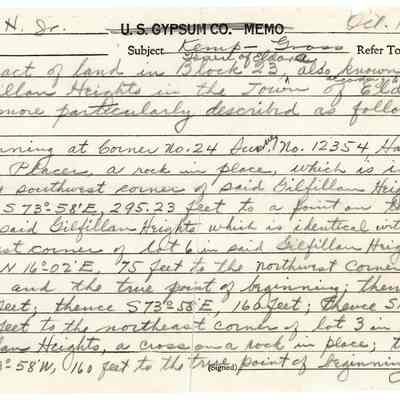 H. Jr. U. S. GYPSUM CO. MEMO Oct. 1
Subject Kemp - Gross Refer To
Heard of Eldora
act of land in Block 23, also known
illan Heights in the Town of Eld
more particularly described as follo
ning at Corner No. 24 Survey No. 12354 Ha
Placer, a rock in place, which is i
southwest corner of said Gilfillan Heig
S 73°-58'E, 295.23 feet to a point on
said Gilfillan Heights which is identical wit
est corner of lot 6 in said Gilfillan Heigh
N 16°-02'E, 75 feet to the northwest corner
and the true point of beginning; then
feet; thence S 73°-58'E, 160 feet; thence S1
feet to the northeast corner of lot 3 in
lan Heights, a cross on a rock in place; t
3°-58'W, 160 feet to the true point of beginning
(Signed)